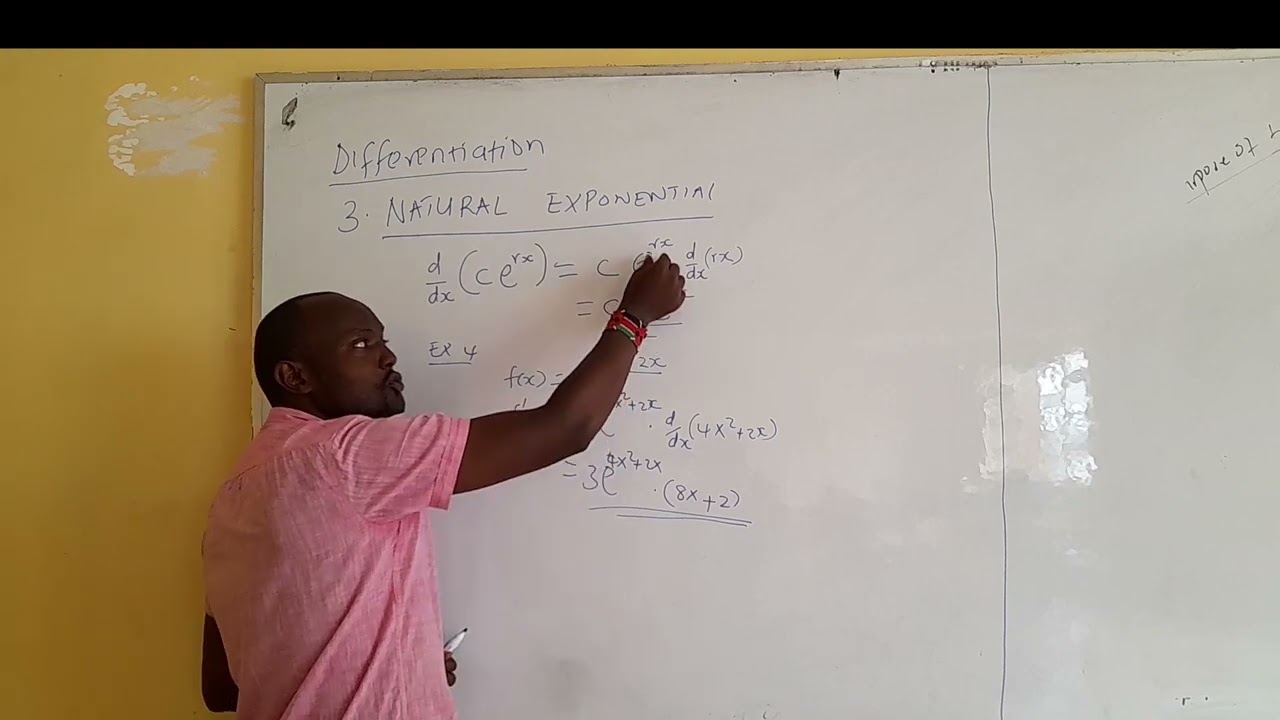 Differentiation
3. NATURAL EXPONENTIAL
d/dx (c e^rx) = c e^rx d/dx (rx)
= c
EX 4
f(x) = 2x
x²+2x · d/dx (4x²+2x)
= 3e^4x²+2x · (8x+2)
of